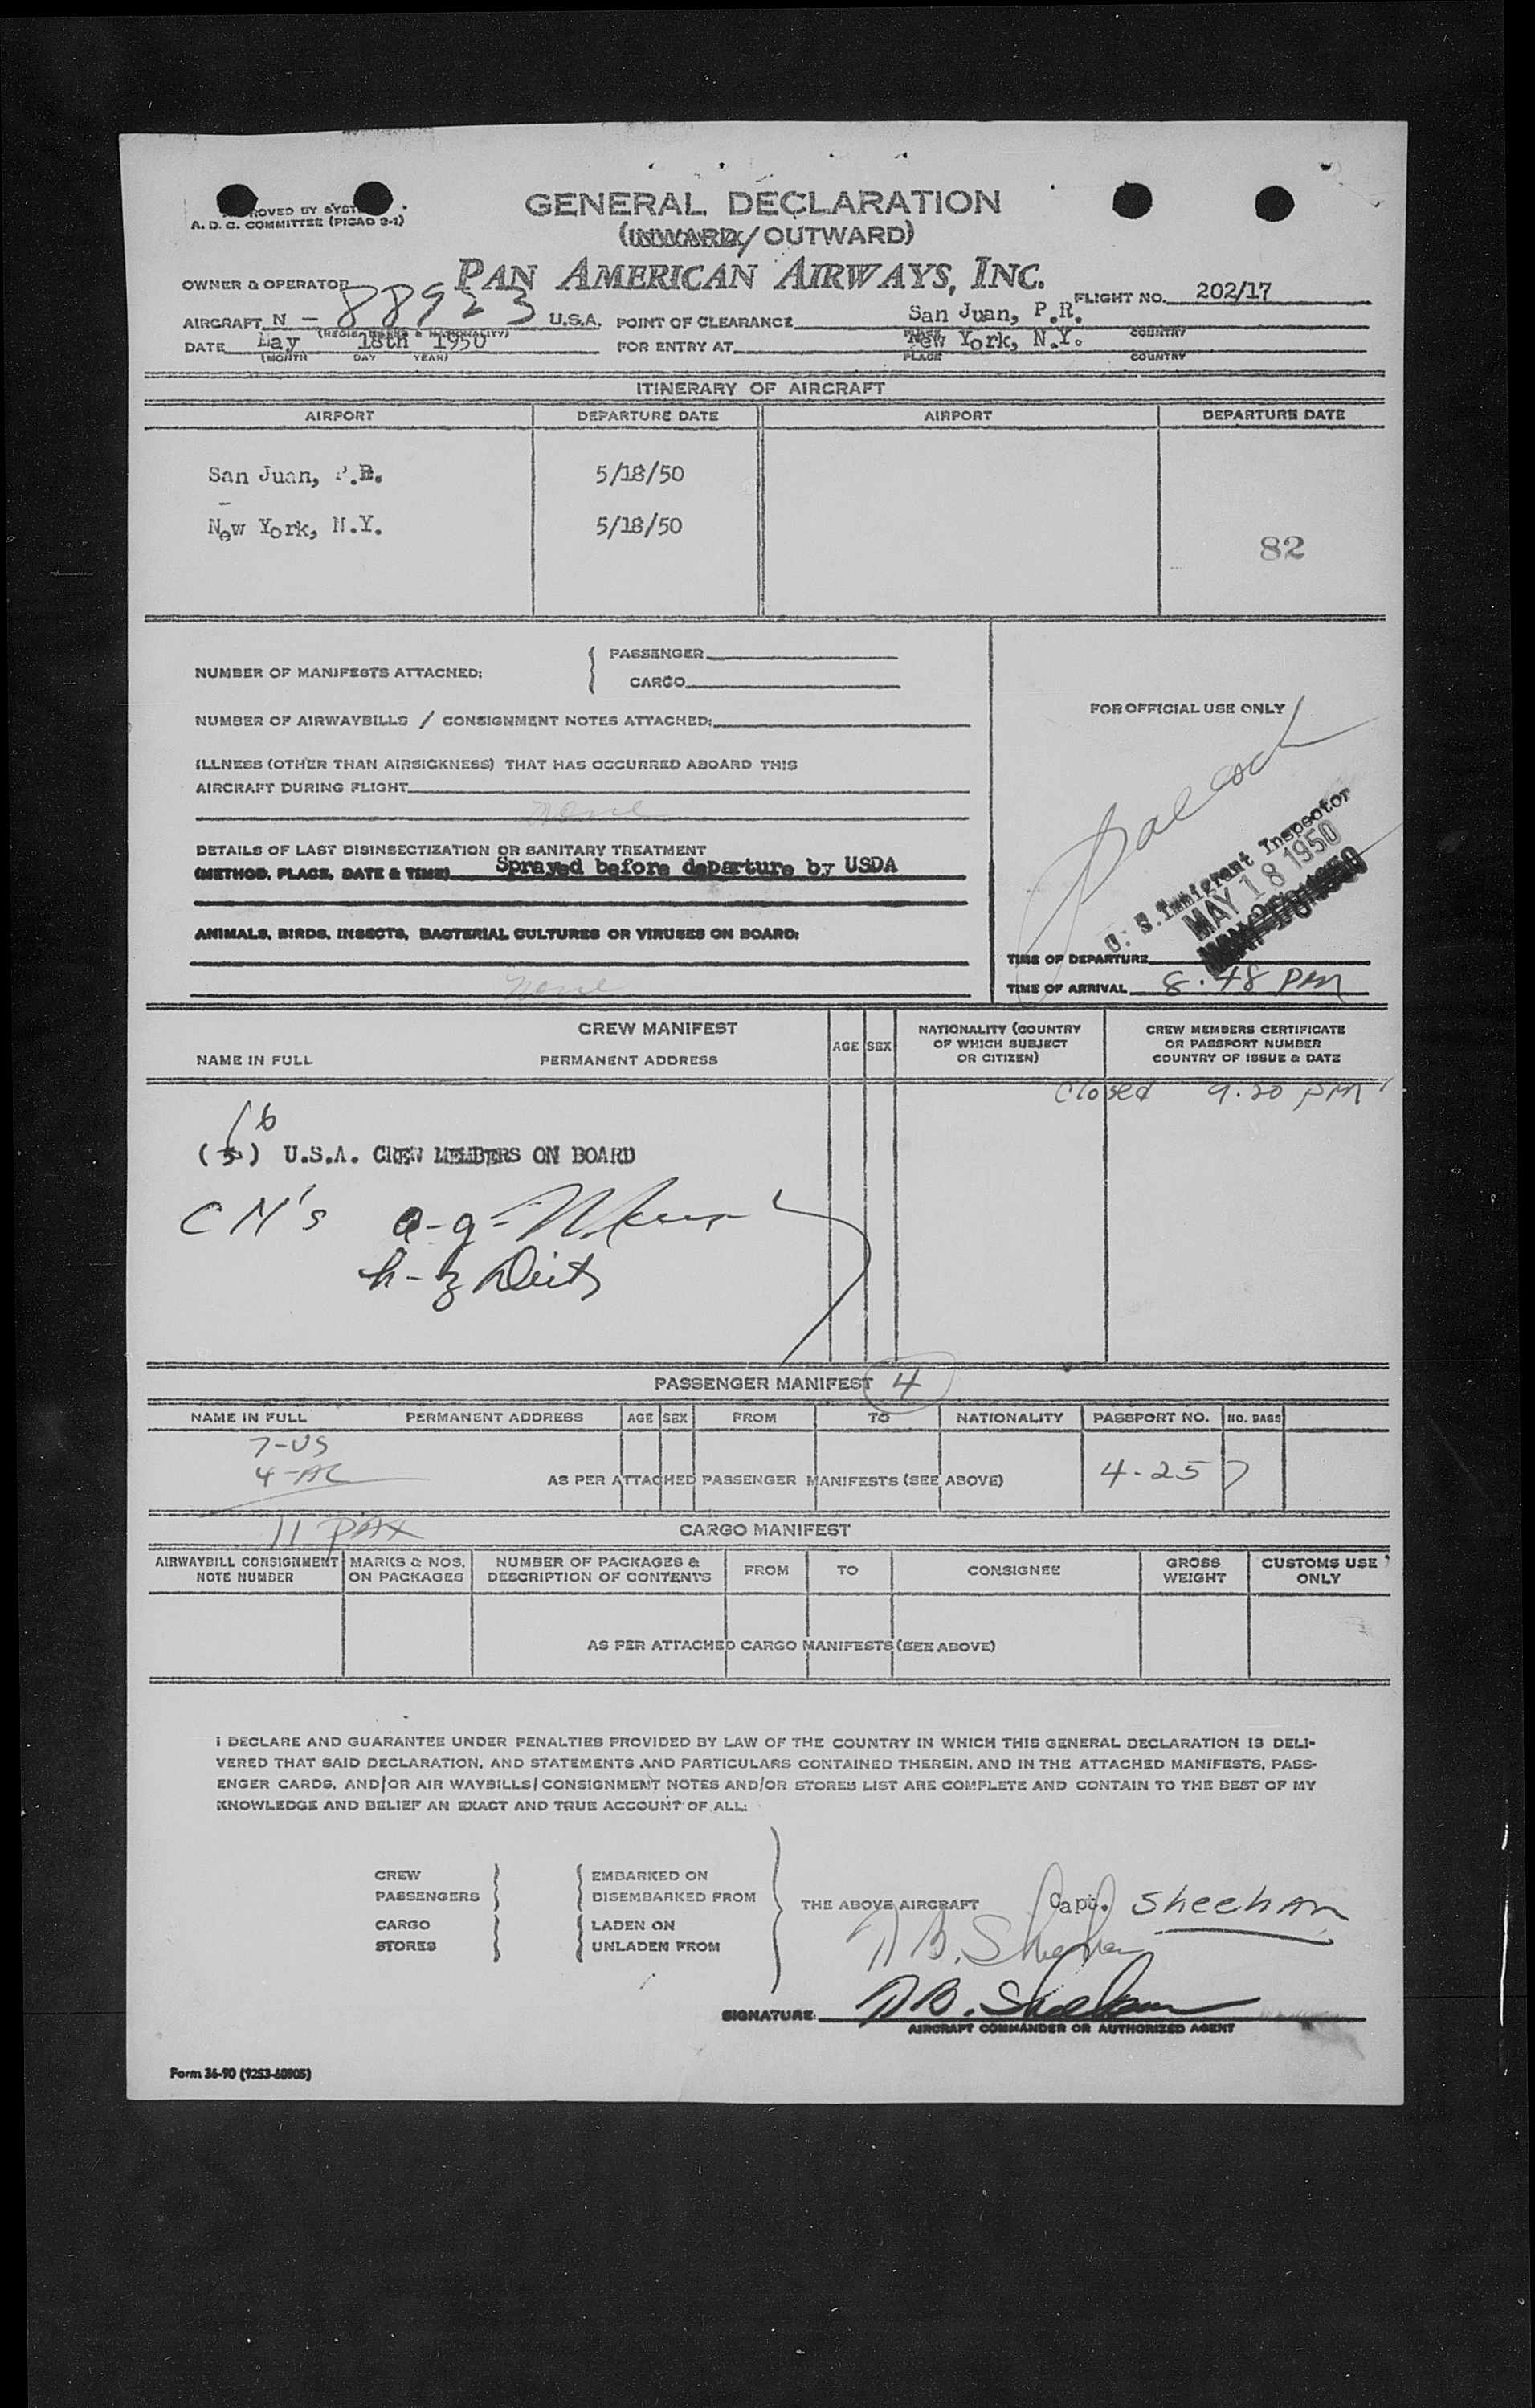 GENERAL DECLARATION
(INWARD/OUTWARD)
A. D. C. COMMITTEE (PICAO 2-1)
PAN AMERICAN AIRWAYS, INC.
OWNER & OPERATOR
FLIGHT NO. 202/17
AIRCRAFT N - 88923 U.S.A. POINT OF CLEARANCE San Juan, P.R.
PLACE COUNTRY
DATE May 18th 1950 FOR ENTRY AT New York, N.Y.
(MONTH DAY YEAR) PLACE COUNTRY
ITINERARY OF AIRCRAFT
AIRPORT DEPARTURE DATE AIRPORT DEPARTURE DATE
San Juan, P.R. 5/18/50
New York, N.Y. 5/18/50
82
NUMBER OF MANIFESTS ATTACHED: PASSENGER
CARGO
NUMBER OF AIRWAYBILLS / CONSIGNMENT NOTES ATTACHED:
FOR OFFICIAL USE ONLY
ILLNESS (OTHER THAN AIRSICKNESS) THAT HAS OCCURRED ABOARD THIS
AIRCRAFT DURING FLIGHT
None
DETAILS OF LAST DISINSECTIZATION OR SANITARY TREATMENT
(METHOD, PLACE, DATE & TIME) Sprayed before departure by USDA
ANIMALS, BIRDS, INSECTS, BACTERIAL CULTURES OR VIRUSES ON BOARD:
None
U. S. Immigrant Inspector
MAY 18 1950
TIME OF DEPARTURE
TIME OF ARRIVAL 8:48 PM
CREW MANIFEST
NAME IN FULL PERMANENT ADDRESS AGE SEX NATIONALITY (COUNTRY OF WHICH SUBJECT OR CITIZEN) CREW MEMBERS CERTIFICATE OR PASSPORT NUMBER COUNTRY OF ISSUE & DATE
Closed 9.20 PM
6
(5) U.S.A. CREW MEMBERS ON BOARD
CM's a-g-
h-z Deitz
PASSENGER MANIFEST 4
NAME IN FULL PERMANENT ADDRESS AGE SEX FROM TO NATIONALITY PASSPORT NO. NO. BAGS
7-US
4-AC
AS PER ATTACHED PASSENGER MANIFESTS (SEE ABOVE) 4-25 7
11 PAX
CARGO MANIFEST
AIRWAYBILL CONSIGNMENT NOTE NUMBER MARKS & NOS. ON PACKAGES NUMBER OF PACKAGES & DESCRIPTION OF CONTENTS FROM TO CONSIGNEE GROSS WEIGHT CUSTOMS USE ONLY
AS PER ATTACHED CARGO MANIFESTS (SEE ABOVE)
I DECLARE AND GUARANTEE UNDER PENALTIES PROVIDED BY LAW OF THE COUNTRY IN WHICH THIS GENERAL DECLARATION IS DELI-
VERED THAT SAID DECLARATION, AND STATEMENTS AND PARTICULARS CONTAINED THEREIN, AND IN THE ATTACHED MANIFESTS, PASS-
ENGER CARDS, AND/OR AIR WAYBILLS/CONSIGNMENT NOTES AND/OR STORES LIST ARE COMPLETE AND CONTAIN TO THE BEST OF MY
KNOWLEDGE AND BELIEF AN EXACT AND TRUE ACCOUNT OF ALL:
CREW EMBARKED ON
PASSENGERS DISEMBARKED FROM
THE ABOVE AIRCRAFT Capt. Sheehan
CARGO LADEN ON
STORES UNLADEN FROM
D B. Sheehan
SIGNATURE: D B. Sheehan
AIRCRAFT COMMANDER OR AUTHORIZED AGENT
Form 36-90 (9253-60805)